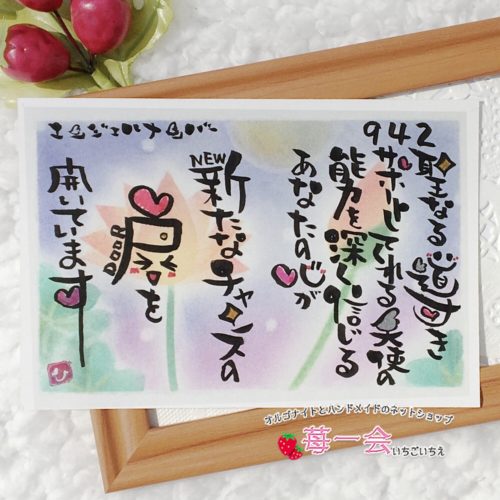 エンジェルナンバー
942
聖なる道すき
サポートしてくれる天使の
能力を深く信じる
あなたの心が
NEW
新たなチャンスの
DOOR
扉を
開いています
ひ
オルゴナイトとハンドメイドのネットショップ
苺一会
いちごいちえ